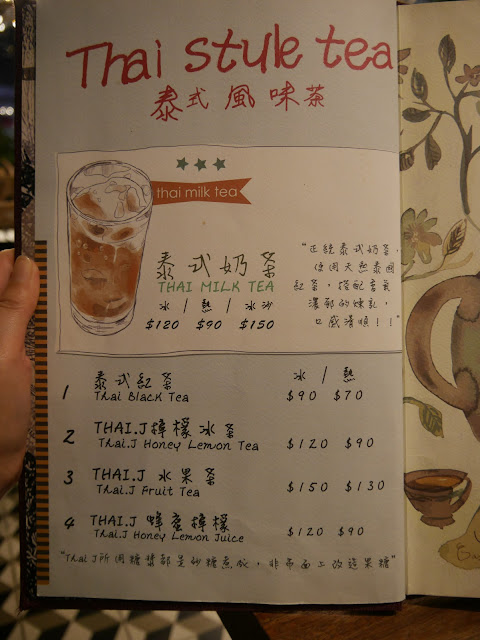 Thai style tea
泰式風味茶
thai milk tea
泰式奶茶
THAI MILK TEA
冰 / 熱 / 冰沙
$120 $90 $150
"正統泰式奶茶,
使用天然泰國
紅茶,搭配香氣
濃郁的煉乳,
口感滑順!!"
冰 / 熱
1 泰式紅茶
Thai Black Tea
$90 $70
2 THAI.J檸檬冰茶
Thai.J Honey Lemon Tea
$120 $90
3 THAI.J 水果茶
Thai.J Fruit Tea
$150 $130
4 THAI.J 蜂蜜檸檬
Thai.J Honey Lemon Juice
$120 $90
"Thai J所用糖漿都是砂糖煮成,非市面上改造果糖"